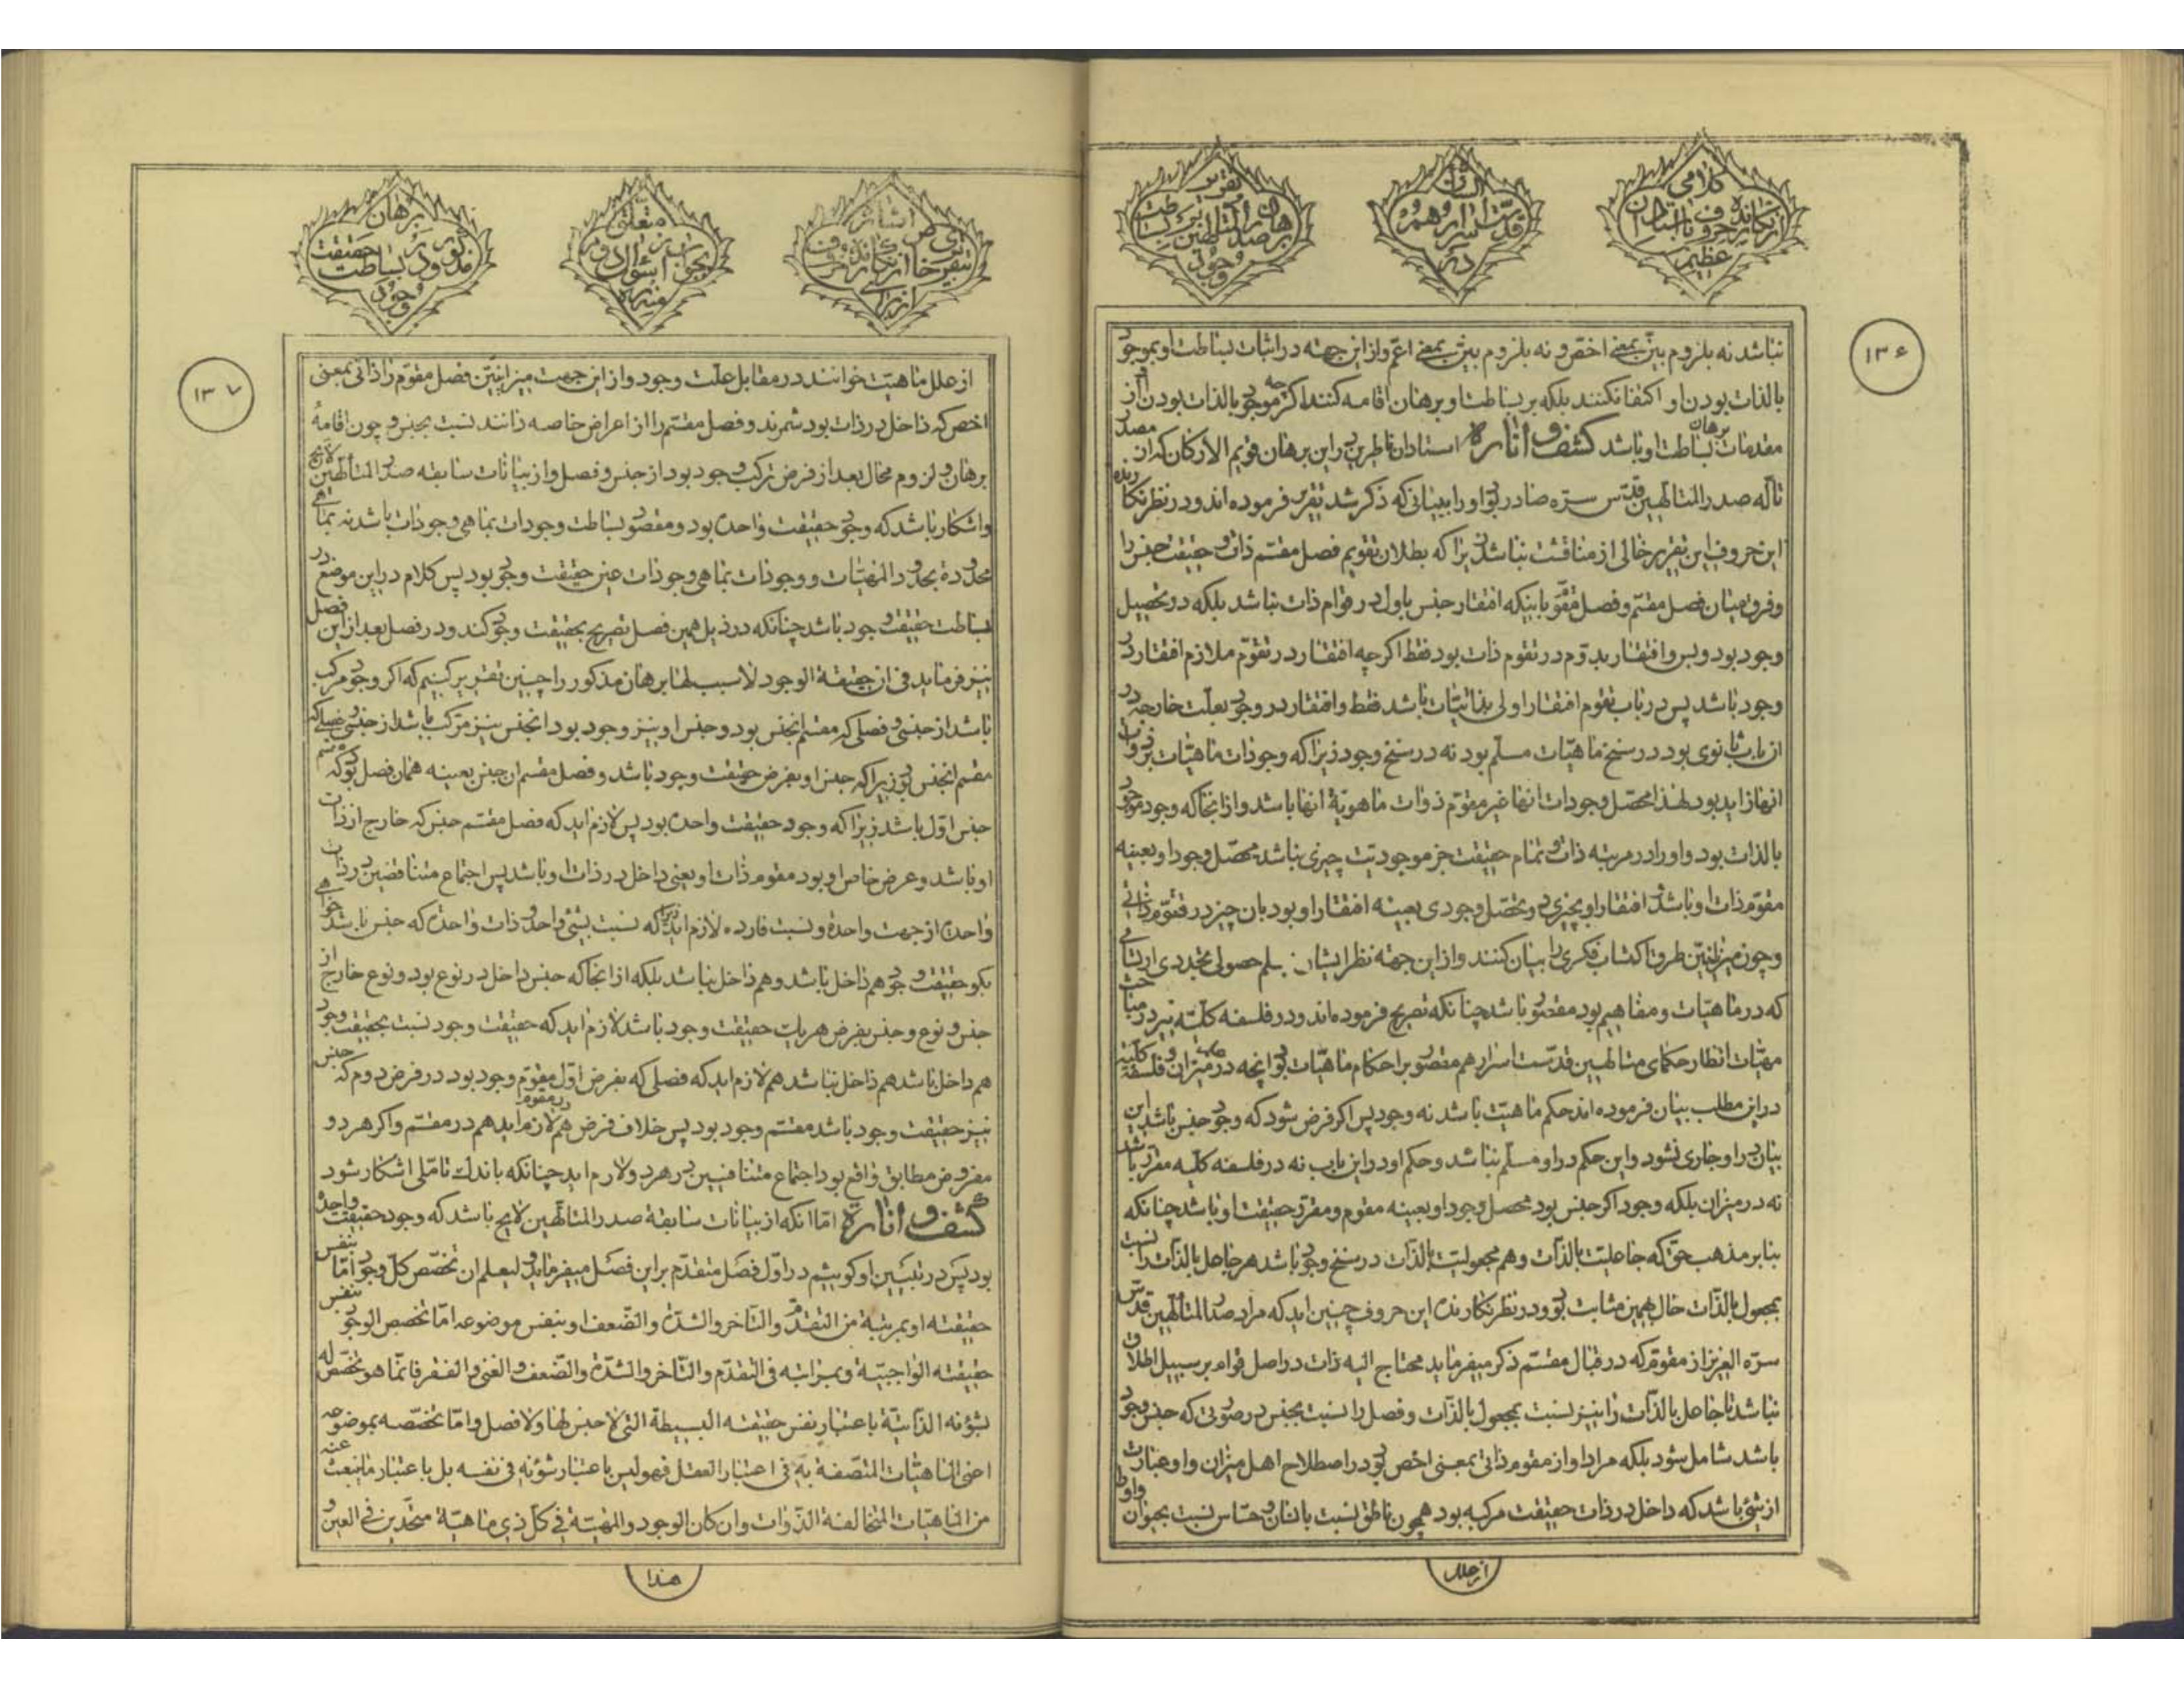 کلامی از نگارنده حروف با استادان عظیم
الذات قدست اسرارهم و در
تقریر برهان صدر المتألهین بر بساطت وجود
۱۳۶
نباشد نه بلزوم بیّن بمعنی اخصّ و نه بلزوم بیّن بمعنی اعمّ و از این جهته در اثبات بساطت او بموجود
بالذات بودن او اکتفا نکنند بلکه بر بساطت او برهان اقامه کنند اگرچه موجود بالذات بودن او از
مقدمات برهان بساطت او باشد کشف و انارة استادان ناظرین در این برهان قویم الارکان که از آن مصدر
تألّه صدر المتألهین قدّس سرّه صادر بود او را ببیانی که ذکر شد تقریر فرموده‌اند و در نظر نگارنده
این حروف این تقریر خالی از مناقشت نباشد زیرا که بطلان تقویم فصل مقسّم ذات و حقیقت جنس را
و فرق میان فصل مقسّم و فصل مقوّم باینکه افتقار جنس باول در قوام ذات نباشد بلکه در تحصیل
وجود بود و بس و افتقار بدوّم در تقوم ذات بود فقط اگرچه افتقار در تقوّم ملازم افتقار در
وجود باشد پس در باب تقوم افتقار اولی بذاتیّات باشد فقط و افتقار در وجود بعلّت خارجه در
از باب ثانوی بود در سنخ ماهیّات مسلّم بود نه در سنخ وجود زیرا که وجودات ماهیّات بر ذوات
آنها زاید بود لهذا محصّل وجودات آنها غیر مقوّم ذوات ماهویّة آنها باشد و از آنجا که وجود موجود
بالذات بود و او را در مرتبه ذات و تمام حقیقت جز موجودیّت چیزی نباشد محصّل وجود او بعینه
مقوّم ذات او باشد افتقار او بچیزی در تحصّل وجودی بعینه افتقار او بود بآن چیز در تقوّم ذاتی
و چون میزانیّین طرق اکتساب فکری را بیان کنند و از این جهته نظر ایشان بعلم حصولی تجددی ارتسامی
که در ماهیّات و مفاهیم بود مقصور باشد چنانکه تصریح فرموده‌اند و در فلسفه کلیّه نیز در مباحث
مهیّات انظار حکمای متالهین قدّست اسرارهم مقصور بر احکام ماهیّات بود آنچه در میزان و فلسفه کلیّه
در این مطلب بیان فرموده‌اند حکم ماهیّت باشد نه وجود پس اگر فرض شود که وجود جنس باشد این
بیان در او جاری نشود و این حکم در او مسلّم نباشد و حکم او در این باب نه در فلسفه کلیّه مقرّر باشد
نه در میزان بلکه وجود اگر جنس بود محصل وجود او بعینه مقوم و مقرّر حقیقت او باشد چنانکه
بنابر مذهب حق که جاعلیّت بالذّات و هم مجعولیّت بالذّات در سنخ وجود باشد هر جاعل بالذّات را نسبت
بمجعول بالذّات حال بهمین مثابت بود و در نظر نگارنده این حروف چنین آید که مراد صدر المتالّهین قدّس
سرّه العزیز از مقوّم که در قبال مقسّم ذکر میفرماید محتاج الیه ذات در اصل قوام بر سبیل اطلاق
نباشد تا جاعل بالذّات را نیز نسبت بمجعول بالذّات و فصل را نسبت بجنس در صورتی که جنس وجود
باشد شامل شود بلکه مراد او از مقوم ذاتی بمعنی اخصّ بود در اصطلاح اهل میزان و او عبارت
از شیئ باشد که داخل در ذات حقیقت مرکبه بود همچون ناطق نسبت بانسان و حسّاس نسبت بحیوان و او را
از علل
اشاره
از نگارنده حروف
متعلق بجواب سؤال دوم
برهان مذکور در بساطت حقیقت وجود
۱۳۷
از علل ماهیّت خوانند در مقابل علّت وجود و از این جهت میزانیّین فصل مقوّم را ذاتی بمعنی
اخص که داخل در ذات بود شمرند و فصل مقسّم را از اعراض خاصه دانند نسبت بجنس و چون اقامهٔ
برهان و لزوم محال بعد از فرض ترکّب وجود بود از جنس و فصل و از بیانات سابقه صدر المتألّهین لایح
و آشکار باشد که وجود حقیقت واحده بود و مقصود بساطت وجودات بما هی وجودات باشد نه بما هی
محدوده بحدود المهیّات و وجودات بما هی وجودات عین حقیقت وجود بود پس کلام در این موضع در
بساطت حقیقت وجود باشد چنانکه در ذیل همین فصل تصریح بحقیقت وجود کند و در فصل بعد از این فصل
نیز فرماید فی ان حقیقة الوجود لا سبب لها برهان مذکور را چنین تقریر کنیم که اگر وجود مرکب
باشد از جنسی و فصلی که مقسّم آنجنس بود و جنس او نیز وجود بود آنجنس نیز مرکّب باشد از جنسی و فصلی که
مقسم آنجنس بود زیرا که جنس او بفرض حقیقت وجود باشد و فصل مقسم آن جنس بعینه همان فصل بود که مقسم
جنس اوّل باشد زیرا که وجود حقیقت واحده بود پس لازم آید که فصل مقسّم جنس که خارج از ذات
او باشد و عرض خاص او بود مقوم ذات او یعنی داخل در ذات او باشد پس اجتماع متناقضین در ذات
واحده از جهت واحده و نسبت فارده لازم آید زیرا که نسبت بشیئ واحد و ذات واحده که جنس باشد خواهی
بگو حقیقت وجود هم داخل باشد و هم داخل نباشد بلکه از آنجا که جنس داخل در نوع بود و نوع خارج از
جنس و نوع و جنس بفرض هر یک حقیقت وجود باشد لازم آید که حقیقت وجود نسبت بحقیقت وجود
هم داخل باشد هم داخل نباشد هم لازم آید که فصلی که بفرض اوّل مقوّم وجود بود در فرض دوم که جنس
نیز حقیقت وجود باشد مقسّم وجود بود پس خلاف فرض هم لازم آید هم در مقوم هم در مقسّم و اگر هر دو
مفروض مطابق واقع بود اجتماع متنافیین در هر دو لازم آید چنانکه باندک تامّلی آشکار شود
کشف و انارة امّا آنکه از بیانات سابقهٔ صدر المتألّهین لایح باشد که وجود حقیقت واحده
بود پس در تبیین او گوییم در اوّل فصل متقدّم بر این فصل میفرماید و لیعلم ان تخصّص کلّ وجود امّا بنفس
حقیقته او بمرتبة من التقدّم و التأخر و الشدّة و الضّعف او بنفس موضوعه امّا تخصص الوجود بنفس
حقیقته الواجبیّة و بمراتبه فی التقدّم و التّأخر و الشدّة و الضّعف و الغنی و الفقر فانّما هو تخصّص له
بشؤنه الذّاتیّة باعتبار نفس حقیقته البسیطة التی لا جنس لها و لا فصل و امّا تخصّصه بموضوعه
اعنی الماهیّات المتّصفة به فی اعتبار العقل فهو لیس باعتبار شؤنه فی نفسه بل باعتبار ما ینبعث عنه
من الماهیّات المتخالفة الذّوات و ان کان الوجود و المهیّة فی کلّ ذی ماهیّة متّحدین فی العین و
هذا